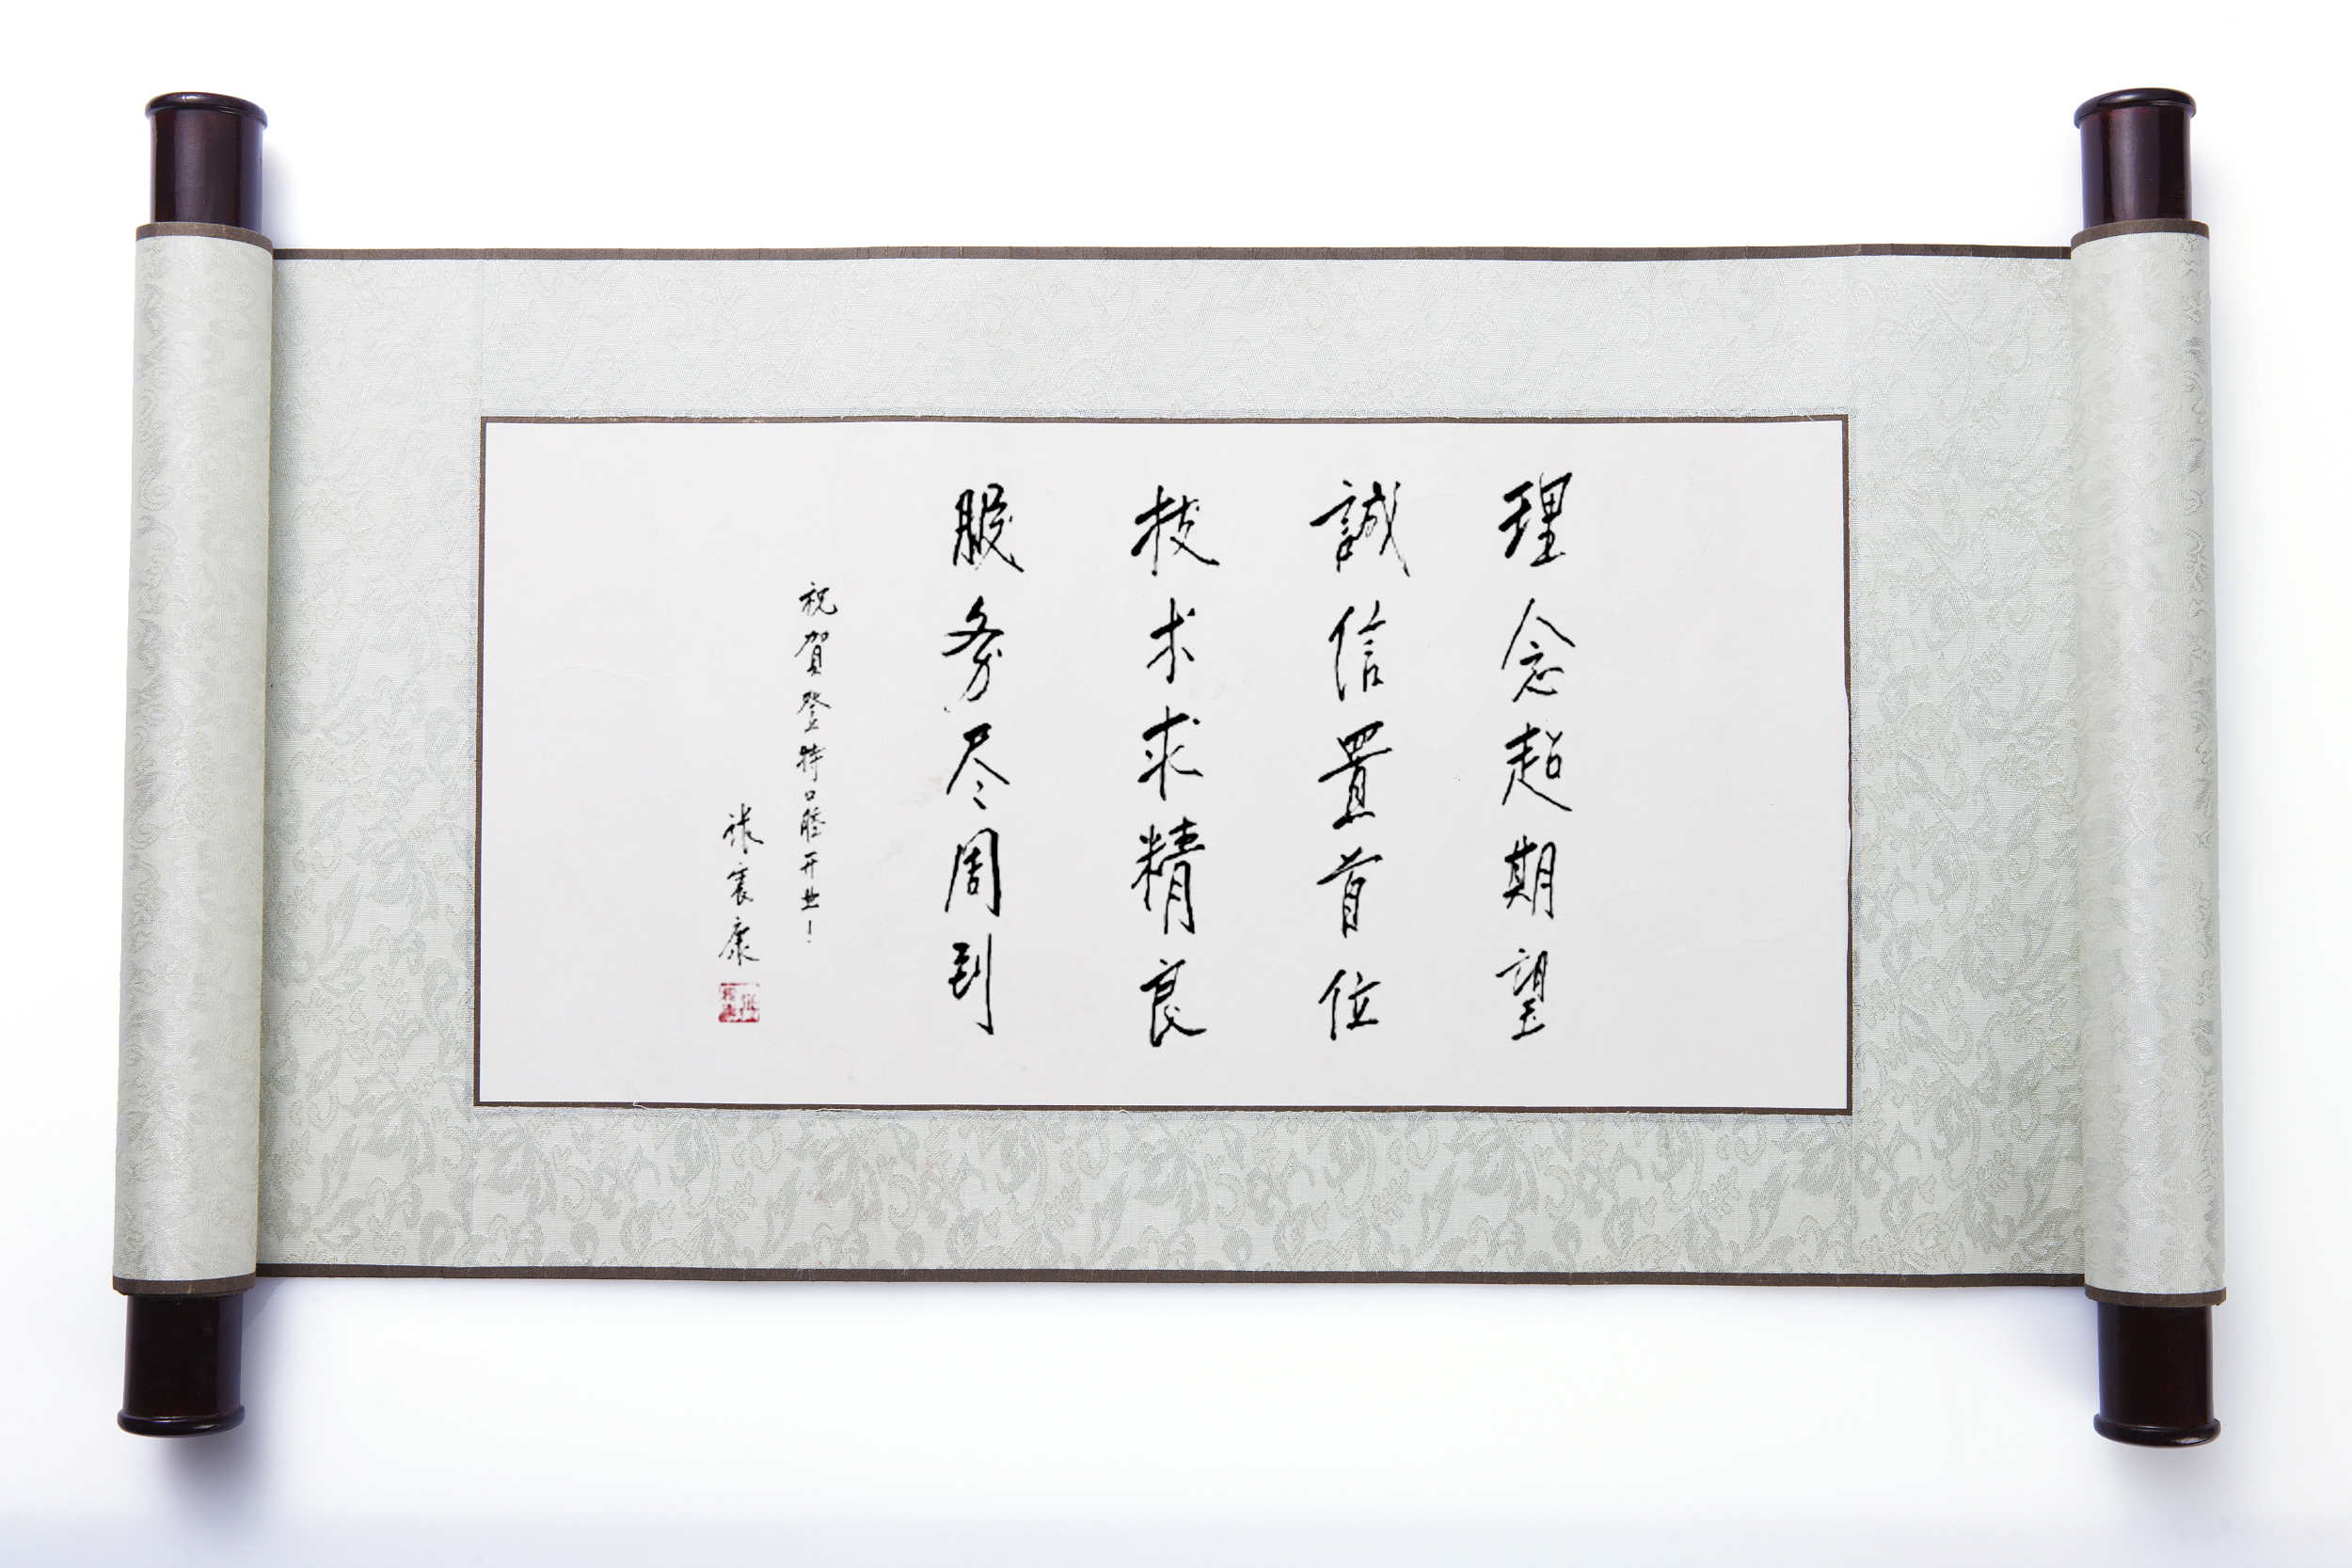 理念超期望
誠信置首位
技术求精良
服务尽周到
祝賀登特口腔开业！
张震康